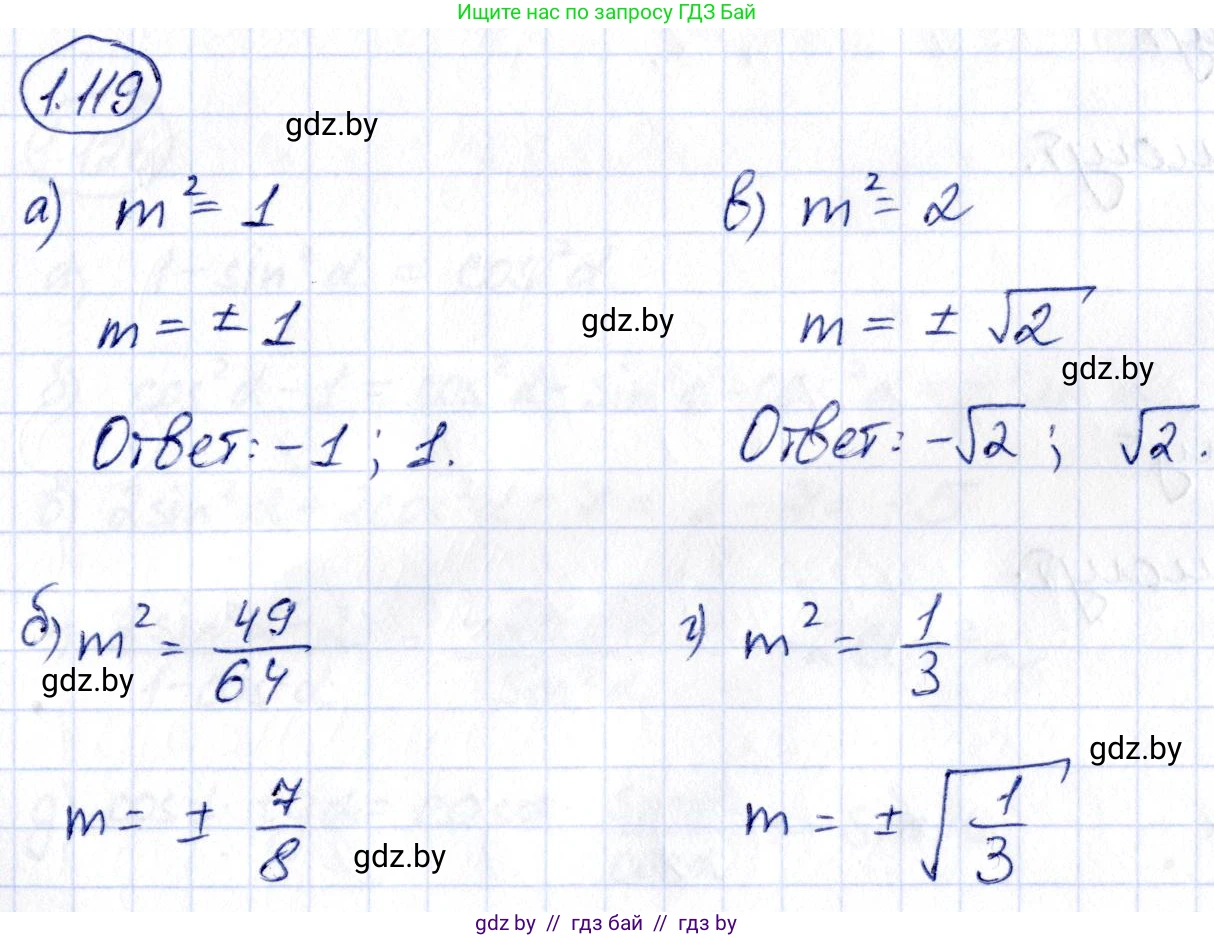 Ищите нас по запросу ГДЗ Бай
1.119
gdz.by
а) m² = 1
m = ± 1
Ответ: -1 ; 1.
в) m² = 2
gdz.by
m = ± √2
gdz.by
Ответ: -√2 ; √2.
б) m² = 49/64
gdz.by
m = ± 7/8
gdz.by
г) m² = 1/3
gdz.by
m = ± √1/3
gdz.by // гдз бай // гдз by